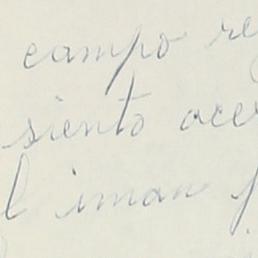 campo re
siento ace
l iman